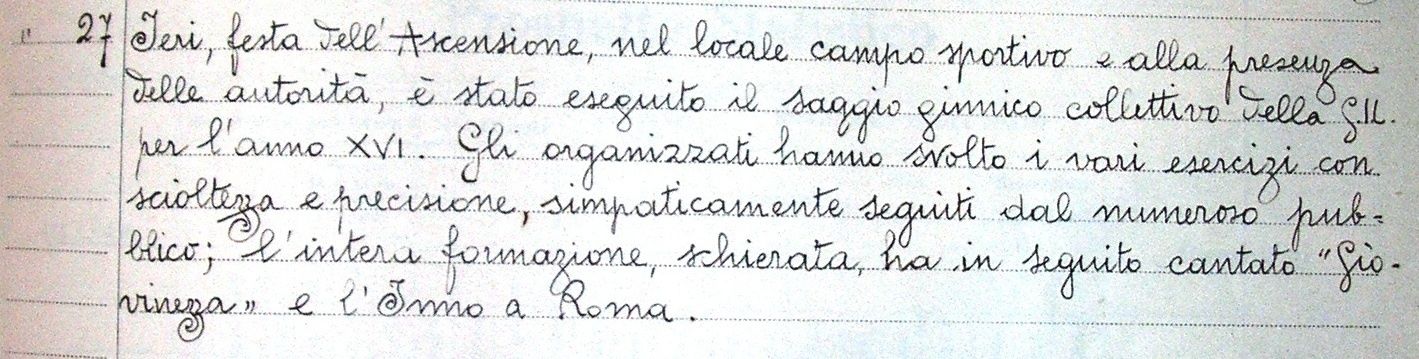 " 27 Ieri, festa dell'Ascensione, nel locale campo sportivo e alla presenza
delle autorità, è stato eseguito il saggio ginnico collettivo della G.I.L.
per l'anno XVI. Gli organizzati hanno svolto i vari esercizi con
scioltezza e precisione, simpaticamente seguiti dal numeroso pub=
blico; l'intera formazione, schierata, ha in seguito cantato "Gio-
vinezza" e l'Inno a Roma.